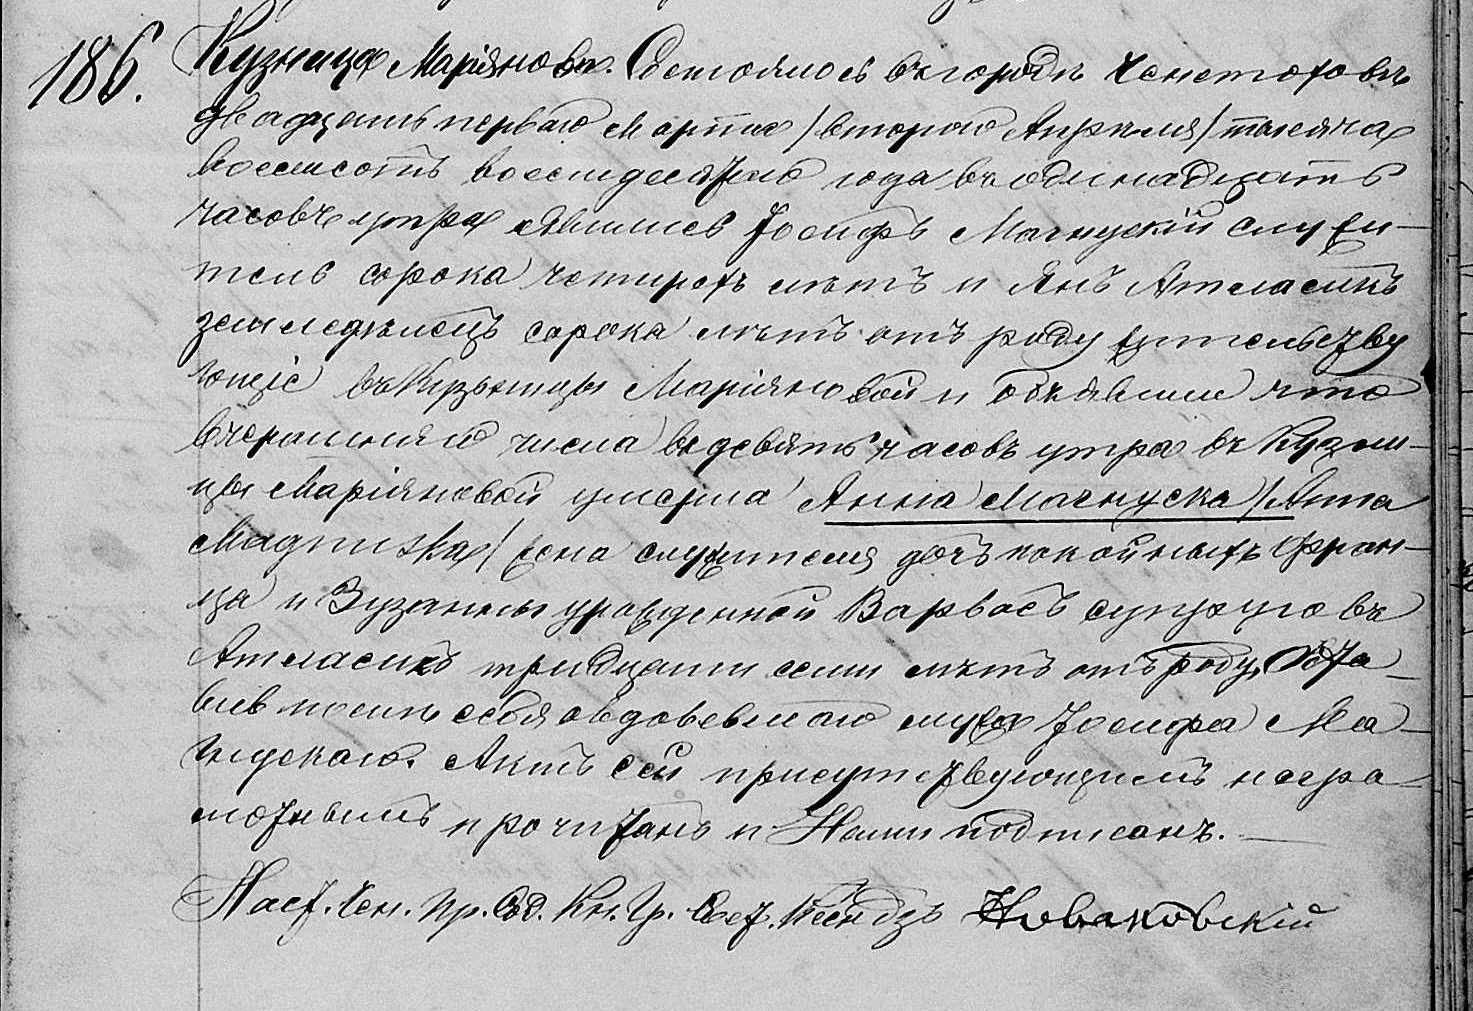 186.
Кузница Маріянова. Состоялось въ городѣ Ченстоховѣ
двадцать перваго Марта /втораго Апрѣля/ тысяча
восемсотъ восемдесятаго года въ одинадцать
часовъ утра явились Іосифъ Магнускій служи-
тель сорока четирехъ лѣтъ и Янъ Атласикъ
земледѣлецъ сорока лѣтъ отъ роду жительству
ющіе въ Кузьницы Маріяновой и объявили что
вчерашняго числа въ девять часовъ утра въ Кузни-
цы Маріяновой умерла Анна Магнуска /Anna
Magnuska/ жена служителя дочь покойныхъ Фран-
ца и Зузанны урожденной Варвасъ супруговъ
Атласикъ тридцати семи лѣтъ отъ роду, Оста
вивъ послѣ себя овдовевшаго мужа Іосифа Ма-
гнускаго. Актъ сей присутствующимъ негра-
мотнымъ прочитанъ и Нами подписанъ.
Наст. Чен. Пр. Сод. Кн. Гр. Сост. Ксендзъ Новаковскій